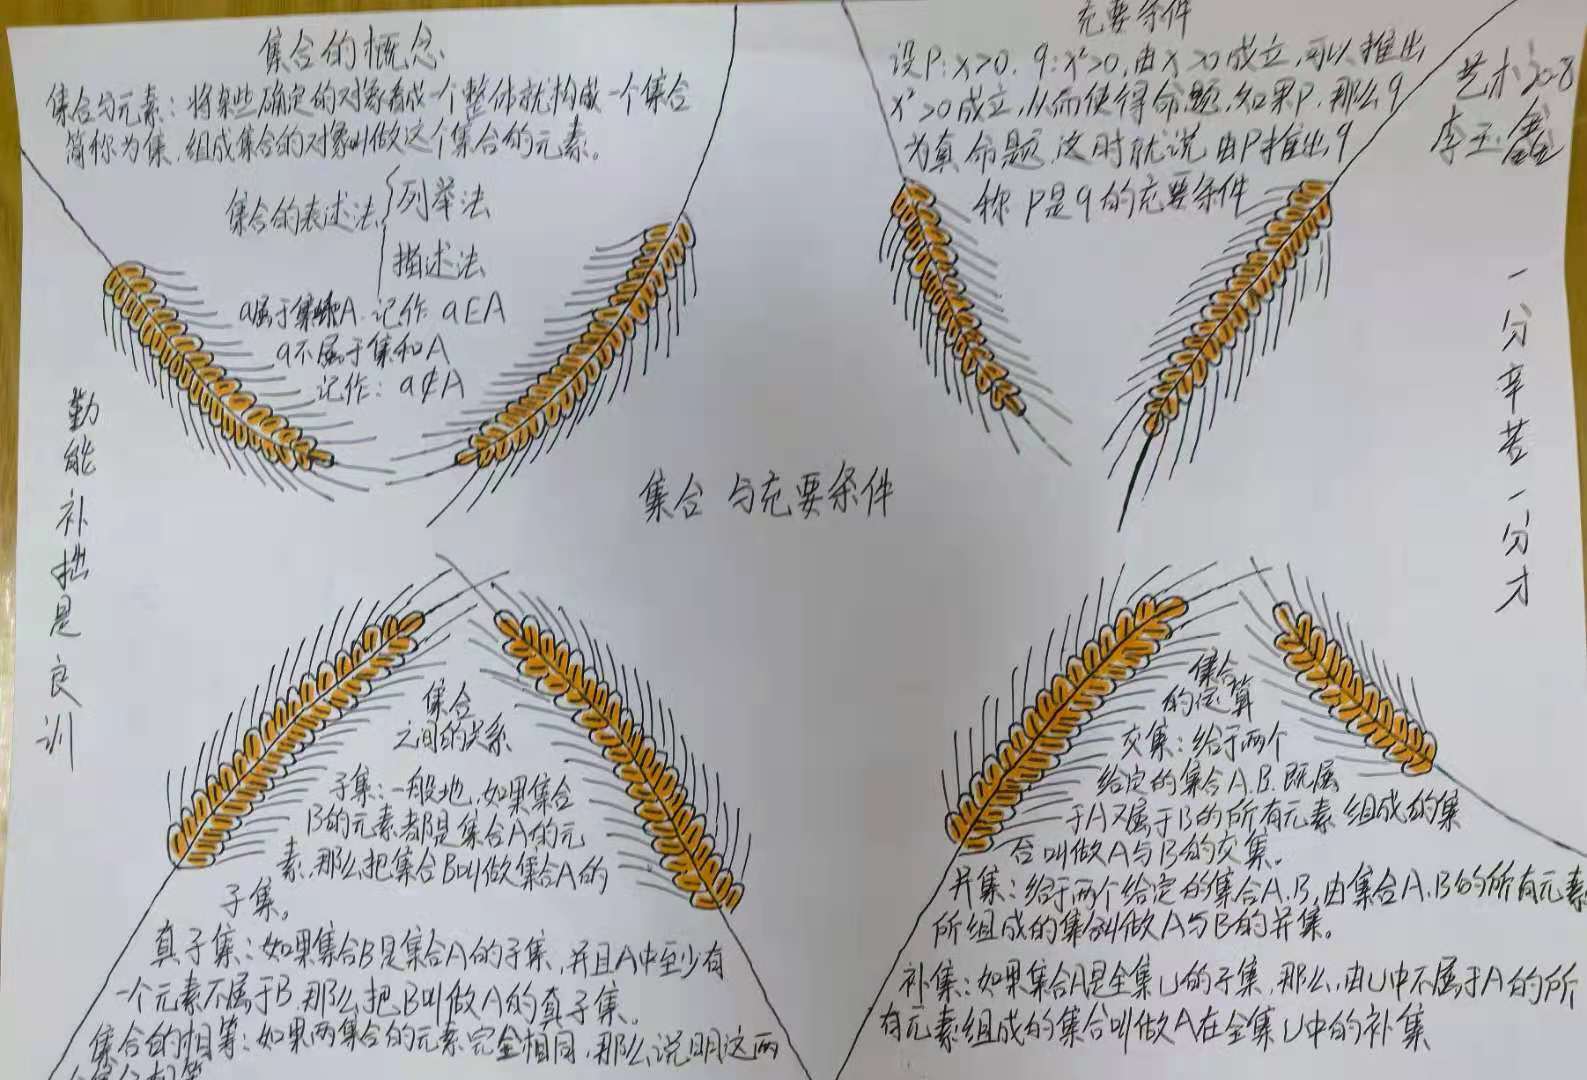 集合的概念
集合与元素：将某些确定的对象看成一个整体就构成一个集合
简称为集，组成集合的对象叫做这个集合的元素。
集合的表述法
列举法
描述法
a属于集和A，记作 a∈A
a不属于集和A
记作：a∉A
充要条件
设P：x>0，q：x²>0，由x>0成立，可以推出
x²>0成立，从而使得命题，如果P，那么q
为真命题，这时就说 由P推出q
称 P是q的充要条件
艺术
李玉鑫
勤能补拙是良训
一分辛苦一分才
集合与充要条件
集合
之间的关系
子集：一般地，如果集合
B的元素都是集合A的元
素，那么把集合B叫做集合A的
子集。
真子集：如果集合B是集合A的子集，并且A中至少有
一个元素不属于B，那么把B叫做A的真子集。
集合的相等：如果两集合的元素完全相同，那么说明这两
集合
的运算
交集：给于两个
给定的集合A.B.既属
于A又属于B的所有元素 组成的集
合叫做A与B的交集。
并集：给于两个给定的集合A.B，由集合A.B的所有元素
所组成的集合叫做A与B的并集。
补集：如果集合A是全集U的子集，那么，由U中不属于A的所
有元素组成的集合叫做A在全集U中的补集